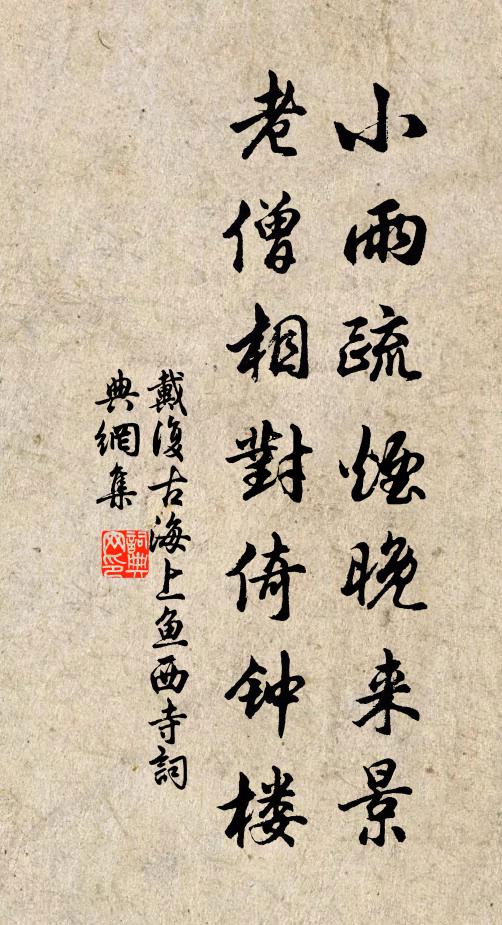 小雨疏煙晚来景
老僧相對倚钟楼
戴復古海上鱼西寺詞
典網集
詞典网印